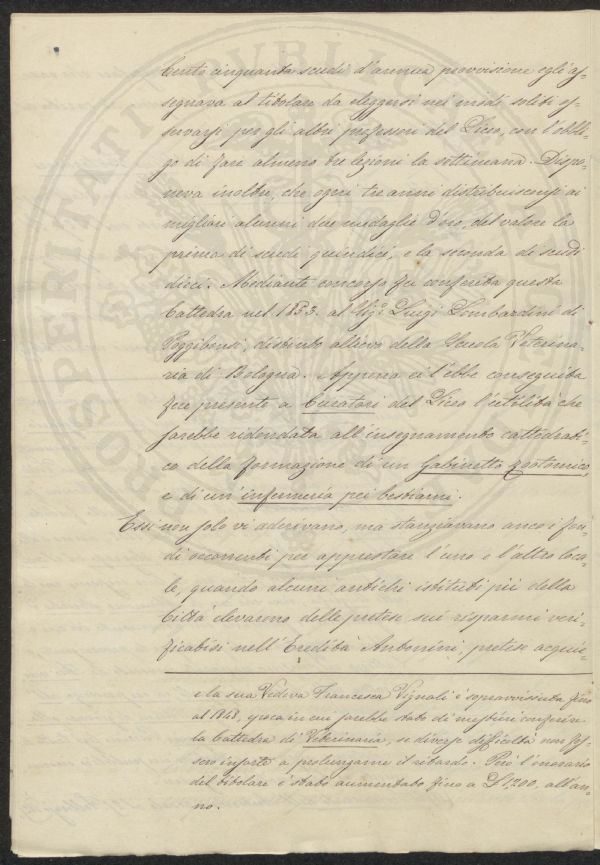 Cento cinquanta scudi d'annua provvisione egli as-
segnava al titolare da eleggersi nei modi soliti os-
servarsi per gli altri professori del Liceo, con l'obbli-
go di fare almeno tre lezioni la settimana. Dispo-
neva inoltre, che ogni tre anni distribuiscensi ai
migliori alunni due medaglie d'oro, del valore la
prima di scudi quindici, e la seconda di scudi
dieci. Mediante concorso fu conferita questa
Cattedra nel 1853. al Sig.r Luigi Lombardini di
Poggibonsi, distinto allievo della Scuola Veterina-
ria di Bologna. Appena ei l'ebbe conseguita
fece presente a Curatori del Liceo l'utilità che
sarebbe ridondata all'insegnamento cattedrati-
co della formazione di un Gabinetto zootomico,
e di un'infermeria pei bestiami.
Essi non solo vi aderivano, ma stanziavano anco i fon-
di occorrenti per apprestare l'uno e l'altro loca-
le, quando alcuni antichi istituti pii della
Città elevarono delle pretese sui risparmi veri-
ficatisi nell'Eredità Antonini, pretese acquie-
e la sua Vedova Francesca Vignali è sopravvissuta fino
al 1848, epoca in cui sarebbe stato di mestieri conferire
la Cattedra di Veterinaria, se diverse difficoltà non fos-
sero insorte a prolungarne il ritardo. Però l'onorario
del titolare è stato aumentato fino a L 1200, all'an-
no.
PROSPERITATI PVBLICAE